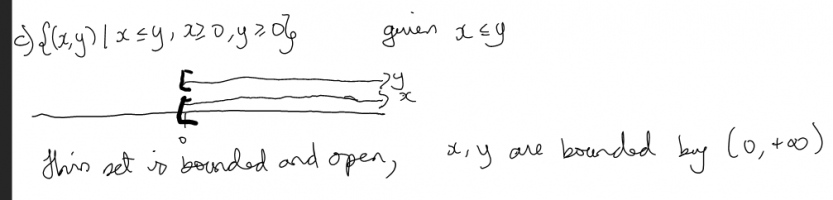 c) {(x,y) | x ≤ y, x ≥ 0, y ≥ 0} given x ≤ y
y
x
0
This set is bounded and open, x, y are bounded by (0, +∞)